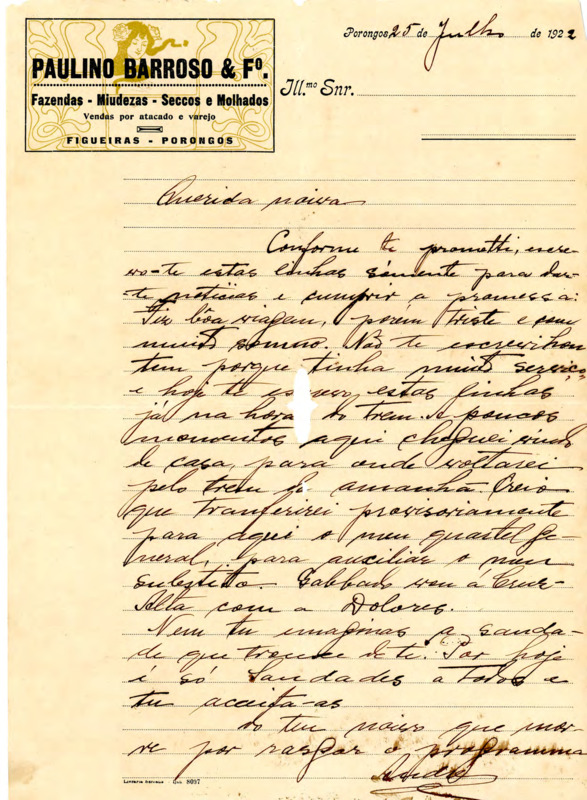 PAULINO BARROSO & Fº.
Fazendas - Miudezas - Seccos e Molhados
Vendas por atacado e varejo
FIGUEIRAS - PORONGOS
Porongos 25 de Julho de 1922
Ill.mo Snr.
Querida noiva
Conforme te prometti, escre-
vo-te estas linhas sómente para dar-
-te noticias e cumprir a promessa.
Fiz bôa viagem, porem triste e com
muito somno. Não te escrevi hon
tem porque tinha muito serviço
e hoje te escrevo estas linhas
já na hora do trem. A poucos
momentos aqui cheguei vindo
de casa, para onde voltarei
pelo trem de amanhã. Creio
que tranferirei provisoriamente
para aqui o meu quartel Ge-
neral, para auxiliar o meu
substito. Sabbado vou á Cruz-
Alta com a Dolores.
Nem tu imaginas a sauda-
de que trouxe de ti. Por hoje
é só Saudades a todos e
tu acceita-as
do teu noivo que mor-
re por rasgar o programma
Livraria 8097